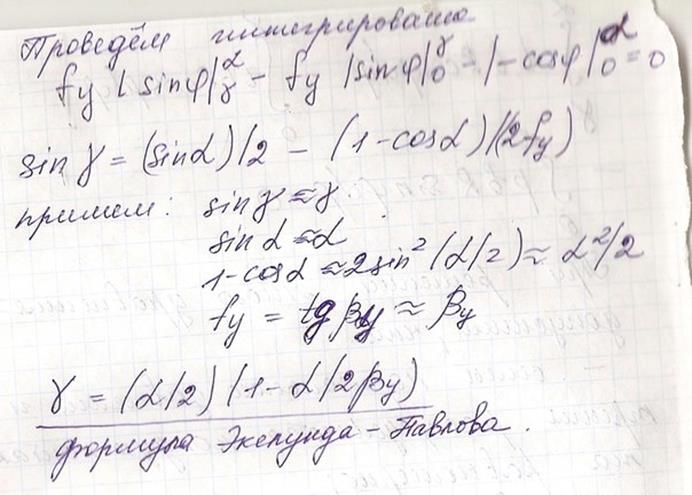 Проведём интегрирование
fy |sinφ|α γ - fy |sinφ|γ 0 - |-cosφ|α 0 = 0
sin γ = (sinα)/2 - (1-cosα)/(2fy)
примем: sin γ ≈ γ
sin α ≈ α
1-cosα ≈ 2sin²(α/2) ≈ α²/2
fy = tg βy ≈ βy
γ = (α/2) (1-α/2βy)
формула Экелунда - Павлова.